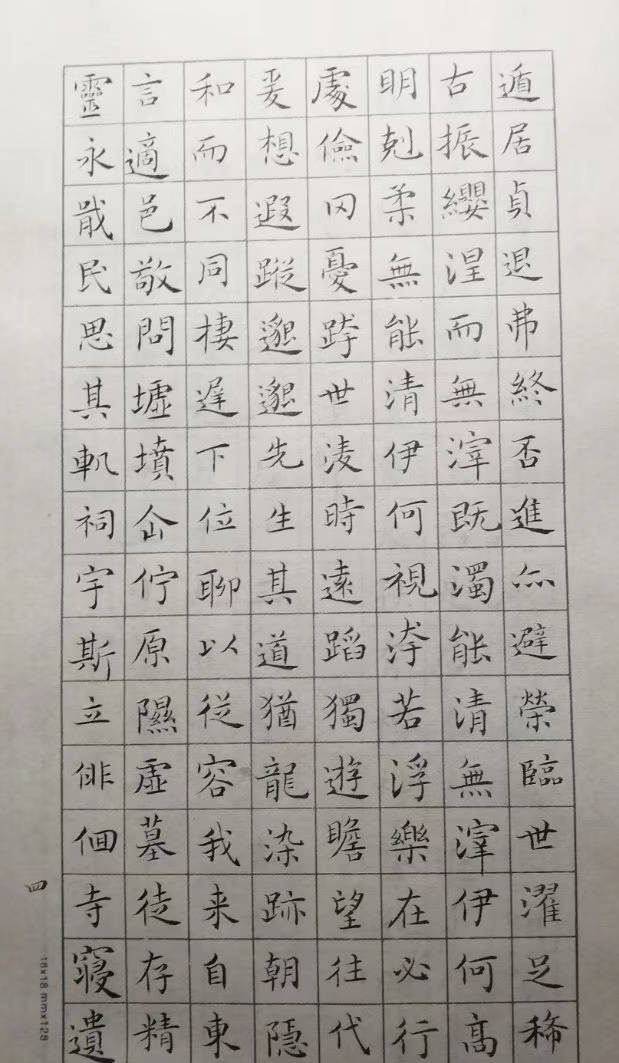 遁居貞退弗終否進亦避榮臨世濯足稀
古振纓涅而無滓既濁能清無滓伊何高
明剋柔無能清伊何視洿若浮樂在必行
處儉罔憂跨世淩時遠蹈獨遊瞻望往代
爰想遐蹤邈邈先生其道猶龍染跡朝隱
和而不同棲遲下位聊以從容我来自東
言適邑敬問墟墳企佇原隰虛墓徒存精
靈永戢民思其軌祠宇斯立俳佪寺寢遺
四
16x18 mmx128